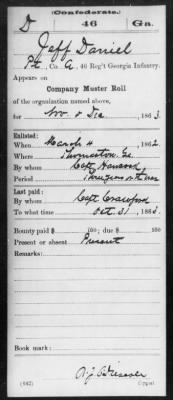 (Confederate.)
D 46 Ga.
Jeff Daniel
Pt, Co. G, 46 Reg't Georgia Infantry.
Appears on
Company Muster Roll
of the organization named above,
for Nov & Dec, 1863.
Enlisted:
When March 4, 1862.
Where Ga
By whom Capt
Period Three years or the war
Last paid:
By whom Capt Crawford
To what time Oct. 31, 1863.
Bounty paid $ 100; due $ 100
Present or absent Present
Remarks:
Book mark:
(642)
Copyist.